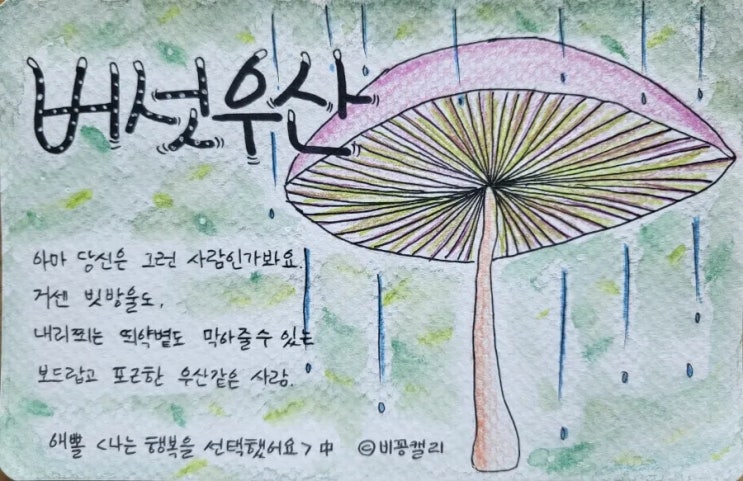 버섯우산
아마 당신은 그런 사람인가봐요.
거센 빗방울도,
내리쬐는 뙤약볕도 막아줄 수 있는
보드랍고 포근한 우산같은 사람.
애뽈 <나는 행복을 선택했어요> 中 ©비꽁캘리